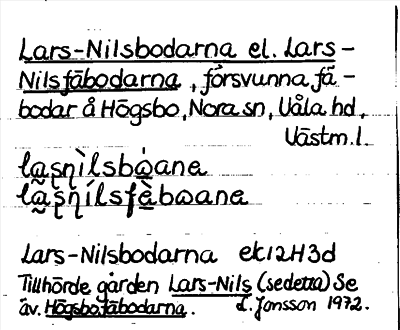 Lars-Nilsbodarna el. Lars-
Nilsfäbodarna, försvunna fä-
bodar å Högsbo, Nora sn, Våla hd,
Västm.l.
Lars-Nilsbodarna ek12H3d
Tillhörde gården Lars-Nils (sedetta) Se
äv. Högsbofäbodarna. L. Jonsson 1972.